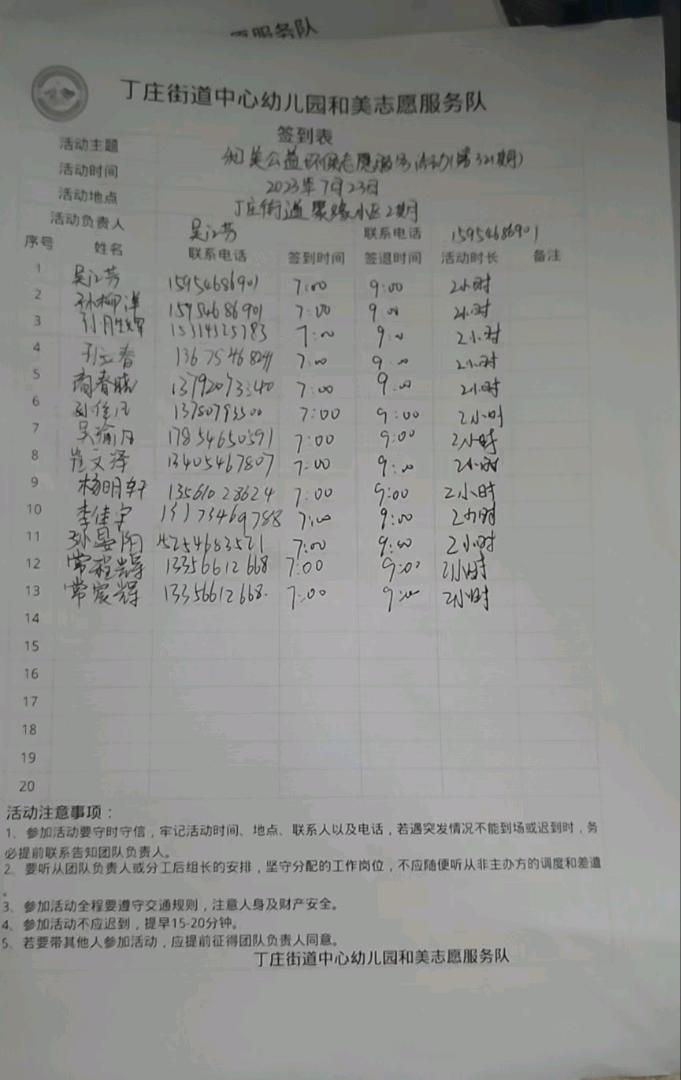 愿服务队
丁庄街道中心幼儿园和美志愿服务队
签到表
活动主题 和美公益环保志愿服务活动(第321期)
活动时间 2023年7月23日
活动地点 丁庄街道聚缘小区2期
活动负责人 吴江芳 联系电话 15954686901
序号 姓名 联系电话 签到时间 签退时间 活动时长 备注
1 吴江芳 15954686901 7:00 9:00 2小时
2 15954686901 7:00 9:00 2小时
3 7:00 9:00 2小时
4 7:00 9:00 2小时
5 商春晓 13792073340 7:00 9:00 2小时
6 7:00 9:00 2小时
7 17854650591 7:00 9:00 2小时
8 崔文泽 13405467807 7:00 9:00 2小时
9 杨明轩 13561028624 7:00 9:00 2小时
10 李佳宇 7:00 9:00 2小时
11 孙晏阳 7:00 9:00 2小时
12 常程辉 13356612668 7:00 9:00 2小时
13 常宸辉 13356612668 7:00 9:00 2小时
14
15
16
17
18
19
20
活动注意事项：
1、参加活动要守时守信，牢记活动时间、地点、联系人以及电话，若遇突发情况不能到场或迟到时，务
必提前联系告知团队负责人。
2、要听从团队负责人或分工后组长的安排，坚守分配的工作岗位，不应随便听从非主办方的调度和差遣
。
3、参加活动全程要遵守交通规则，注意人身及财产安全。
4、参加活动不应迟到，提早15-20分钟。
5、若要带其他人参加活动，应提前征得团队负责人同意。
丁庄街道中心幼儿园和美志愿服务队